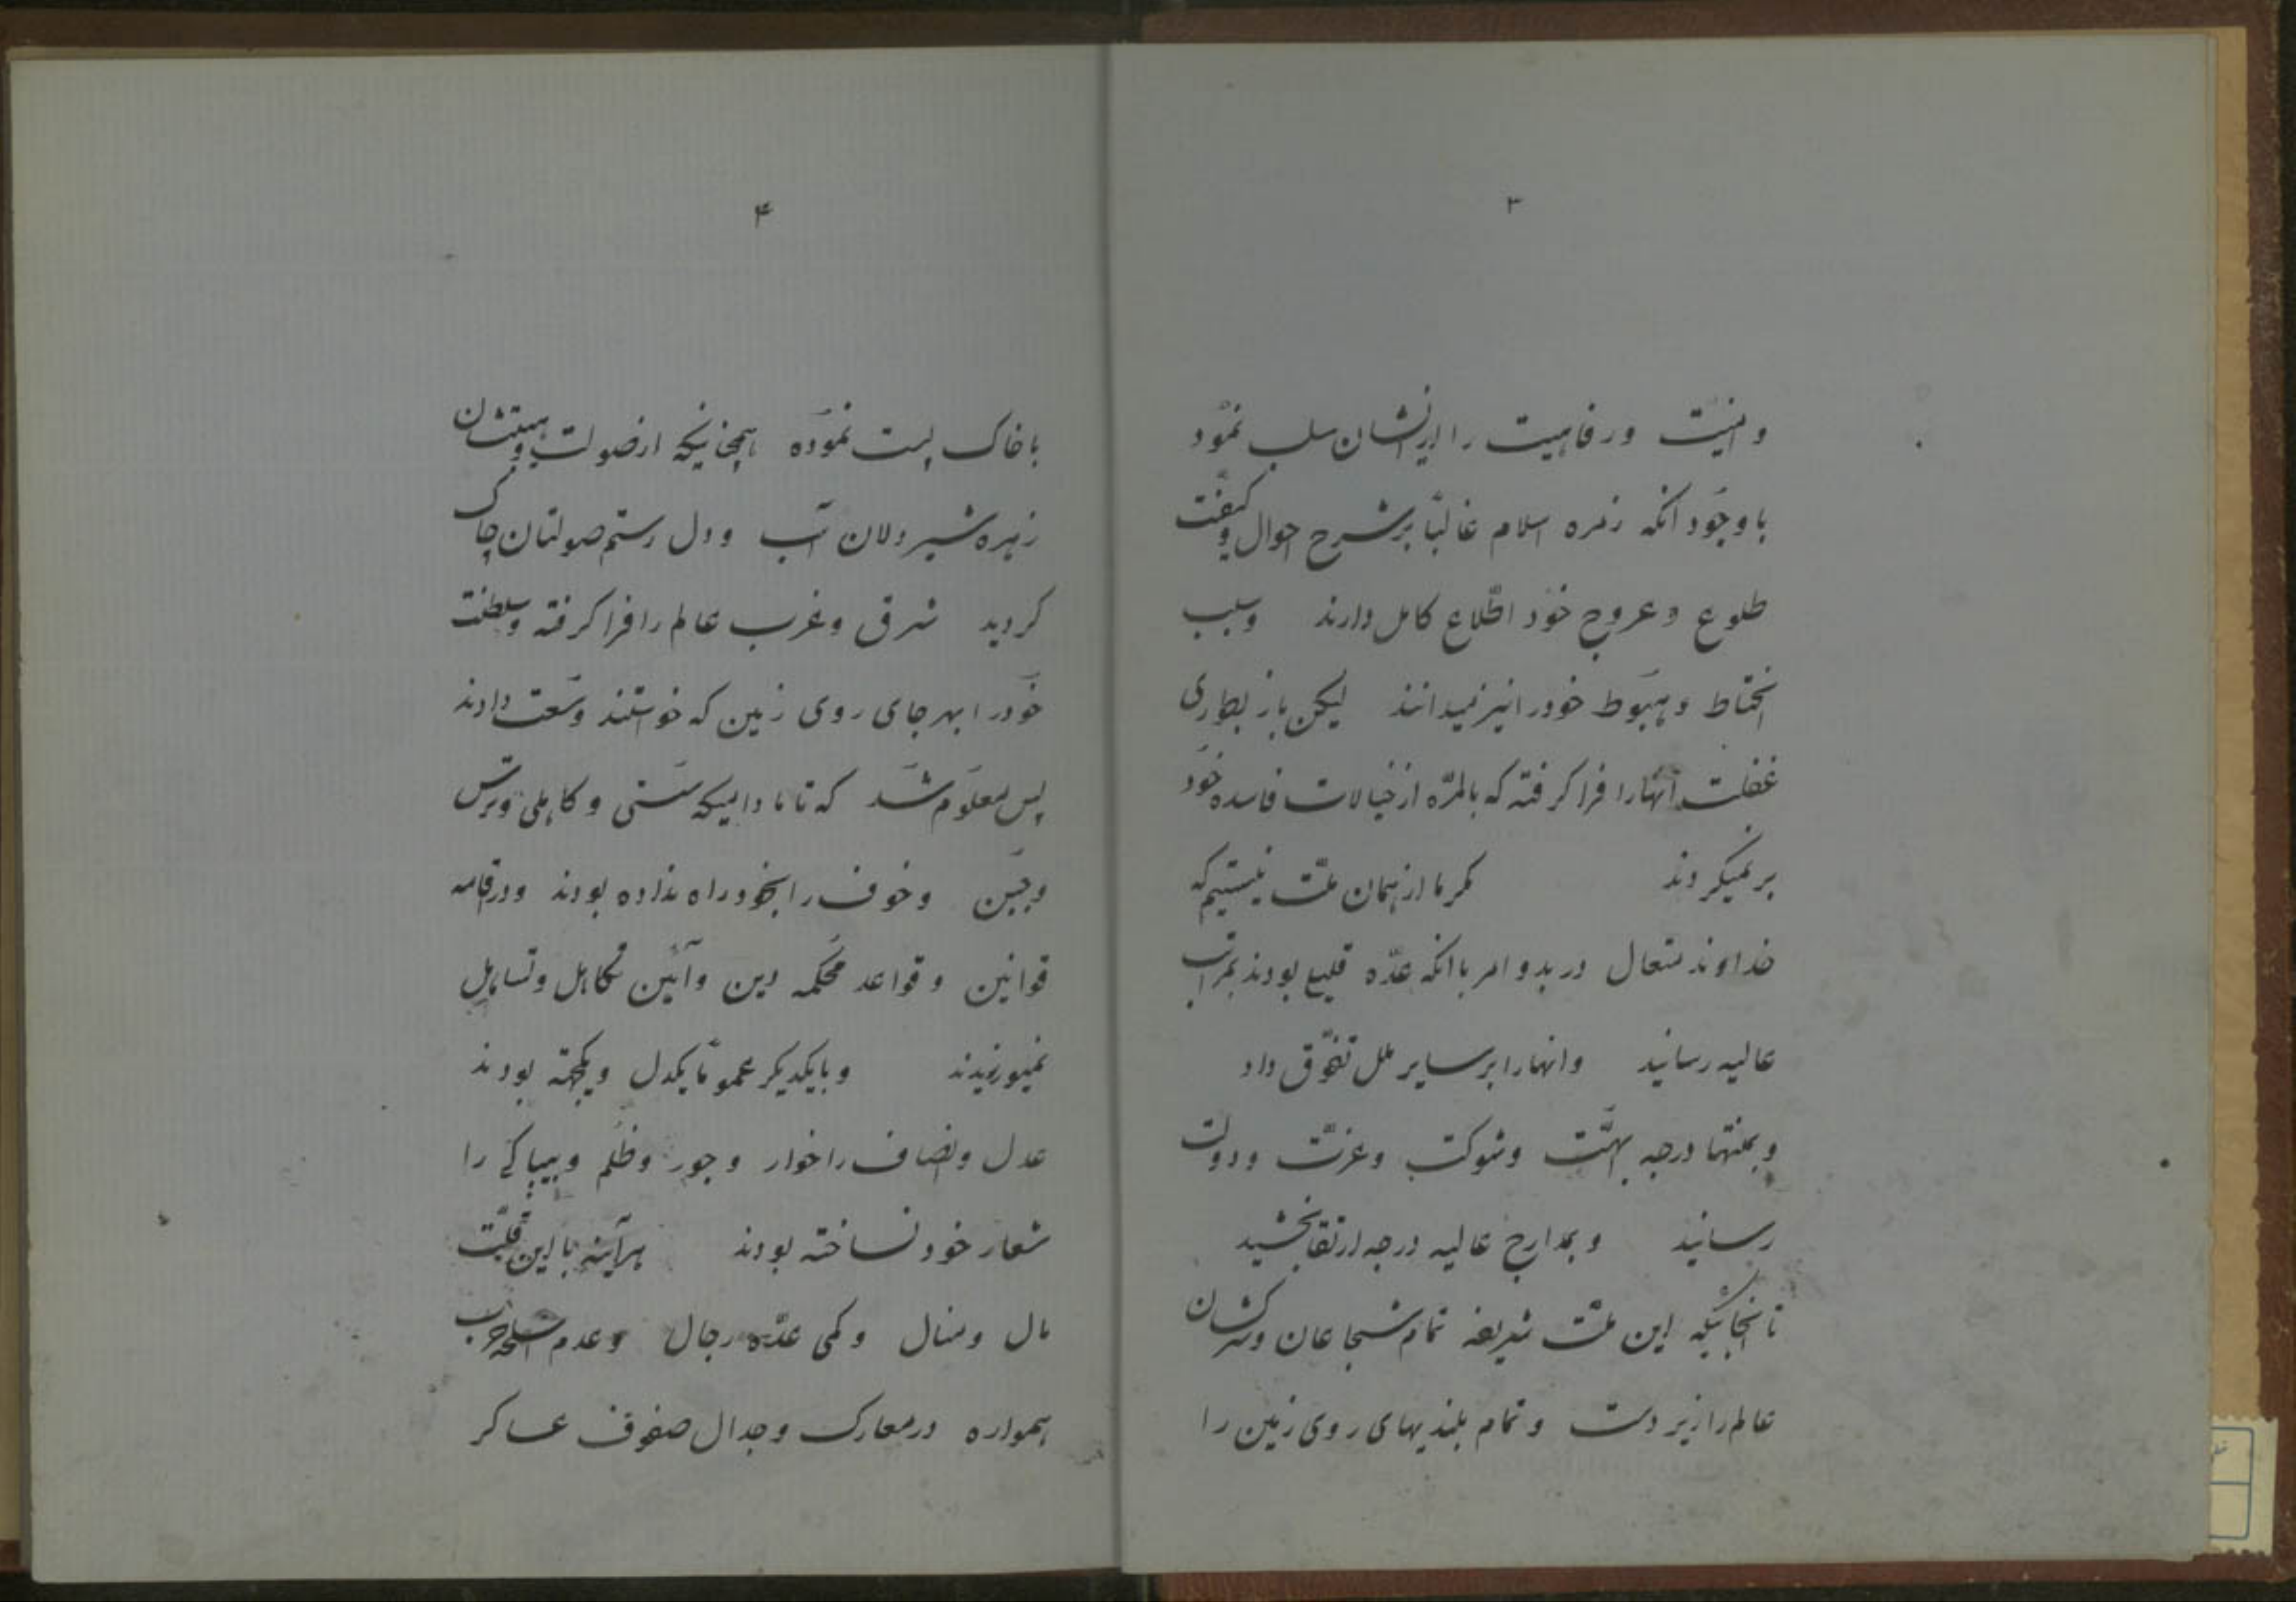 ۳
و امنیّت و رفاهیت را از ایشان سلب نمود
با وجود آنکه زمره اسلام غالباً بر شرح احوال و کیفیّت
طلوع و عروج خود اطّلاع کامل دارند و سبب
انحطاط و هبوط خود را نیز میدانند لیکن باز بطوری
غفلت آنها را فرا گرفته که بالمرّه از خیالات فاسده خود
بر نمیگردند مگر ما از همان ملّت نیستیم که
خداوند متعال در بدو امر با آنکه عدّه قلیل بودند بمراتب
عالیه رسانید و انها را بر سایر ملل تفوّق داد
و بمنتها درجه ابهّت و شوکت و عزّت و دولت
رسانید و بمدارج عالیه درجه ارتقا بخشید
تا بجائیکه این ملّت شریفه تمام شجاعان و سرکشان
عالم را زیر دست و تمام بلندیهای روی زمین را
۴
با خاک پست نموده همچنانیکه از صولت و هیبتشان
زهره شیر دلان آب و دل رستم صولتان چاک
گردید شرق و غرب عالم را فرا گرفته و سلطنت
خود را بهر جای روی زمین که خواستند وسعت دادند
پس معلوم شد که تا مادامیکه سستی و کاهلی و ترس
و جبن و خوف را بخود راه نداده بودند و در اقامه
قوانین و قواعد محکمه دین و آئین تکاهل و تساهل
نمیورزیدند و با یکدیگر عموماً یکدل و یکجهة بودند
عدل و انصاف را خوار و جور و ظلم و بیباکی را
شعار خود نساخته بودند هرآینه با این قلّت
مال و منال و کمی عدّه رجال و عدم اسلحه حرب
همواره در معارک و جدال صفوف عساکر